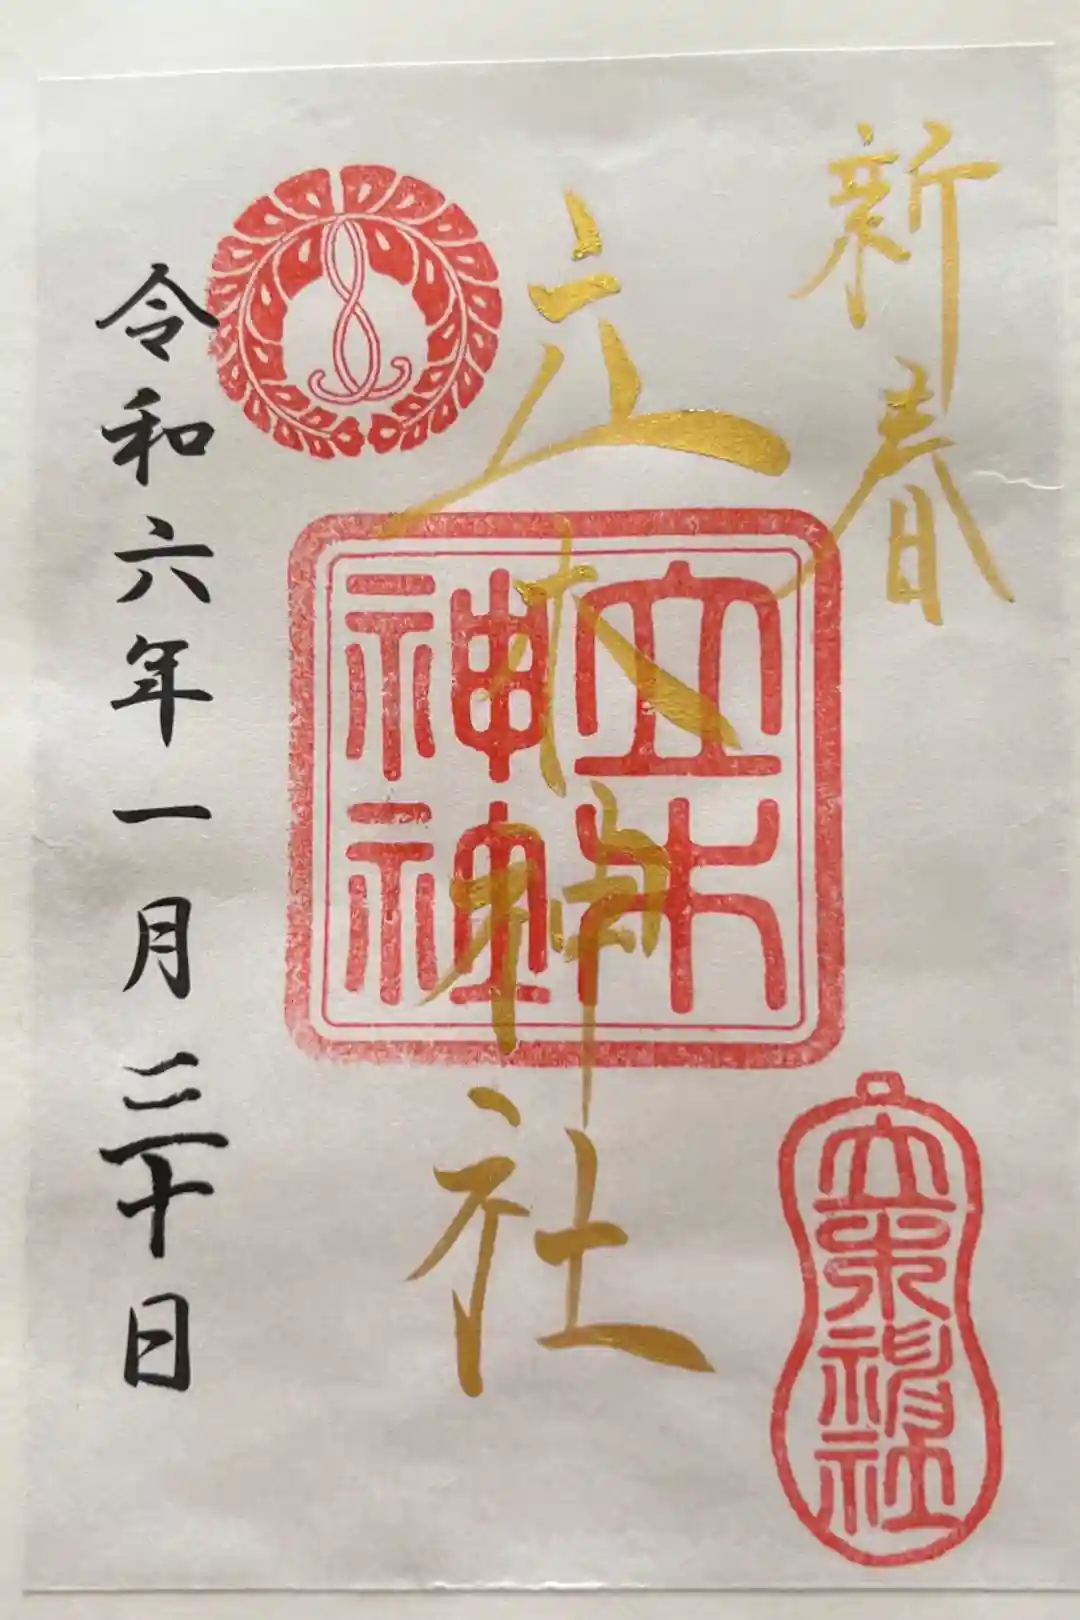 新春
立木神社
立木
神社
立木神社
令和六年一月三十日